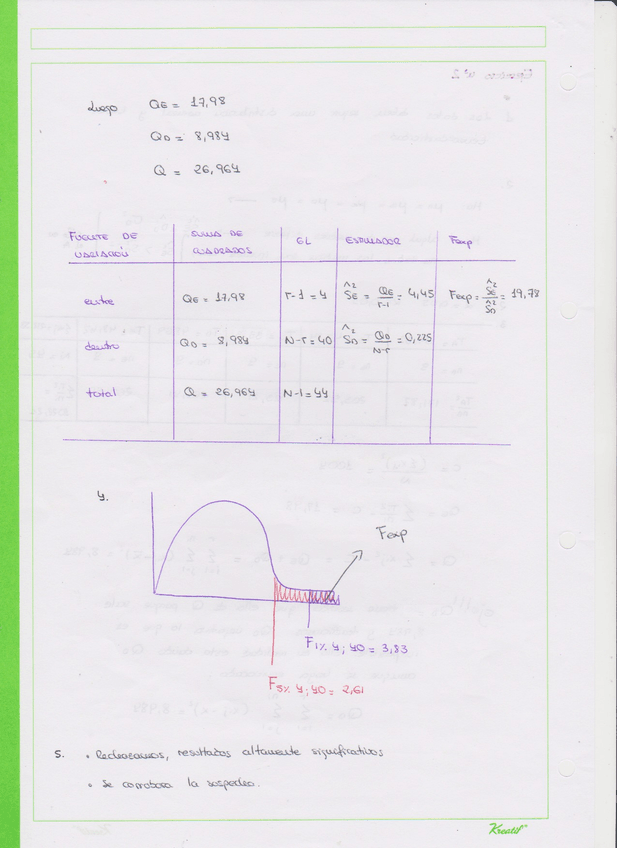 Luego QE = 17,98
QD = 8,984
Q = 26,964
FUENTE DE VARIACIÓN SUMA DE CUADRADOS GL ESTIMADOR Fexp
entre QE = 17,98 r-1 = 4 ŜE² = QE/r-1 = 4,45 Fexp = ŜE²/ŜD² = 19,78
dentro QD = 8,984 N-r = 40 ŜD² = QD/N-r = 0,225
total Q = 26,964 N-1 = 44
4.
Fexp
F1% 4; 40 = 3,83
F5% 4; 40 = 2,61
5. • Rechazamos, resultados altamente significativos
• Se corrobora la sospecha.
Kreatif